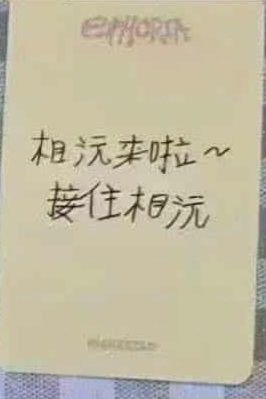 EUPHORIA
相沅来啦～
接住相沅